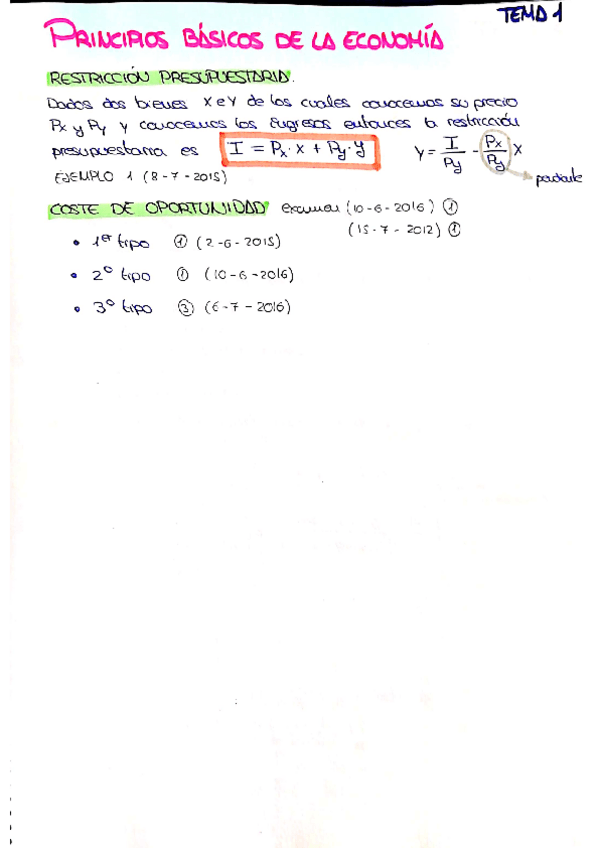 TEMA 1
PRINCIPIOS BÁSICOS DE LA ECONOMÍA
RESTRICCIÓN PRESUPUESTARIA.
Dados dos bienes X e Y de los cuales conocemos su precio
Px y Py y conocemos los Ingresos entonces la restricción
presupuestaria es I = Px · x + Py · y Y = I/Py - Px/Py X
pendiente
EJEMPLO 1 (8-7-2015)
COSTE DE OPORTUNIDAD examen (10-6-2016) ①
(15-7-2012) ①
• 1er tipo ① (2-6-2015)
• 2º tipo ① (10-6-2016)
• 3º tipo ③ (6-7-2016)